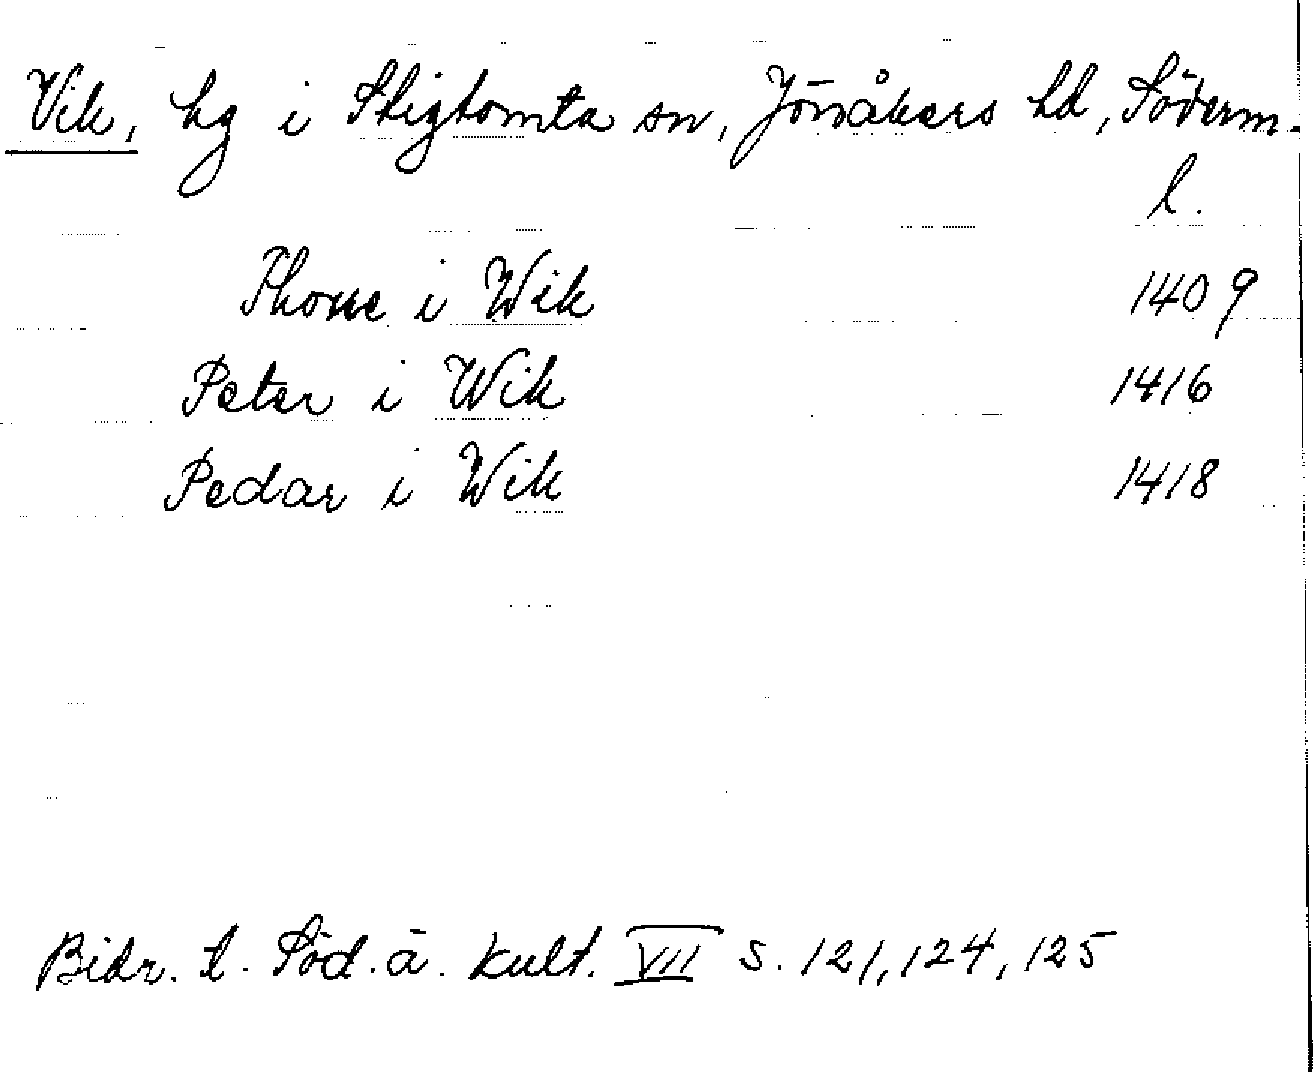 Vik, hg i Stigtomta sn, Jönåkers hd, Söderm.
l.
Thone i Wik 1409
Peter i Wik 1416
Pedar i Wik 1418
Bidr. t. Söd. ä. kult. VII s. 121, 124, 125